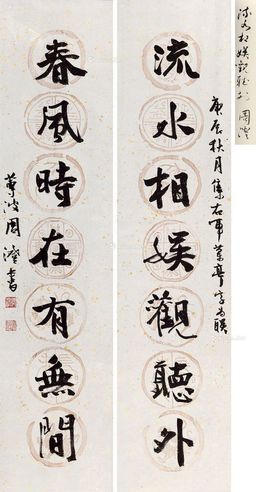 流水相娱觀聽外
庚辰秋月集右軍蘭亭字為联
春風時在有無間
夢波周澄書